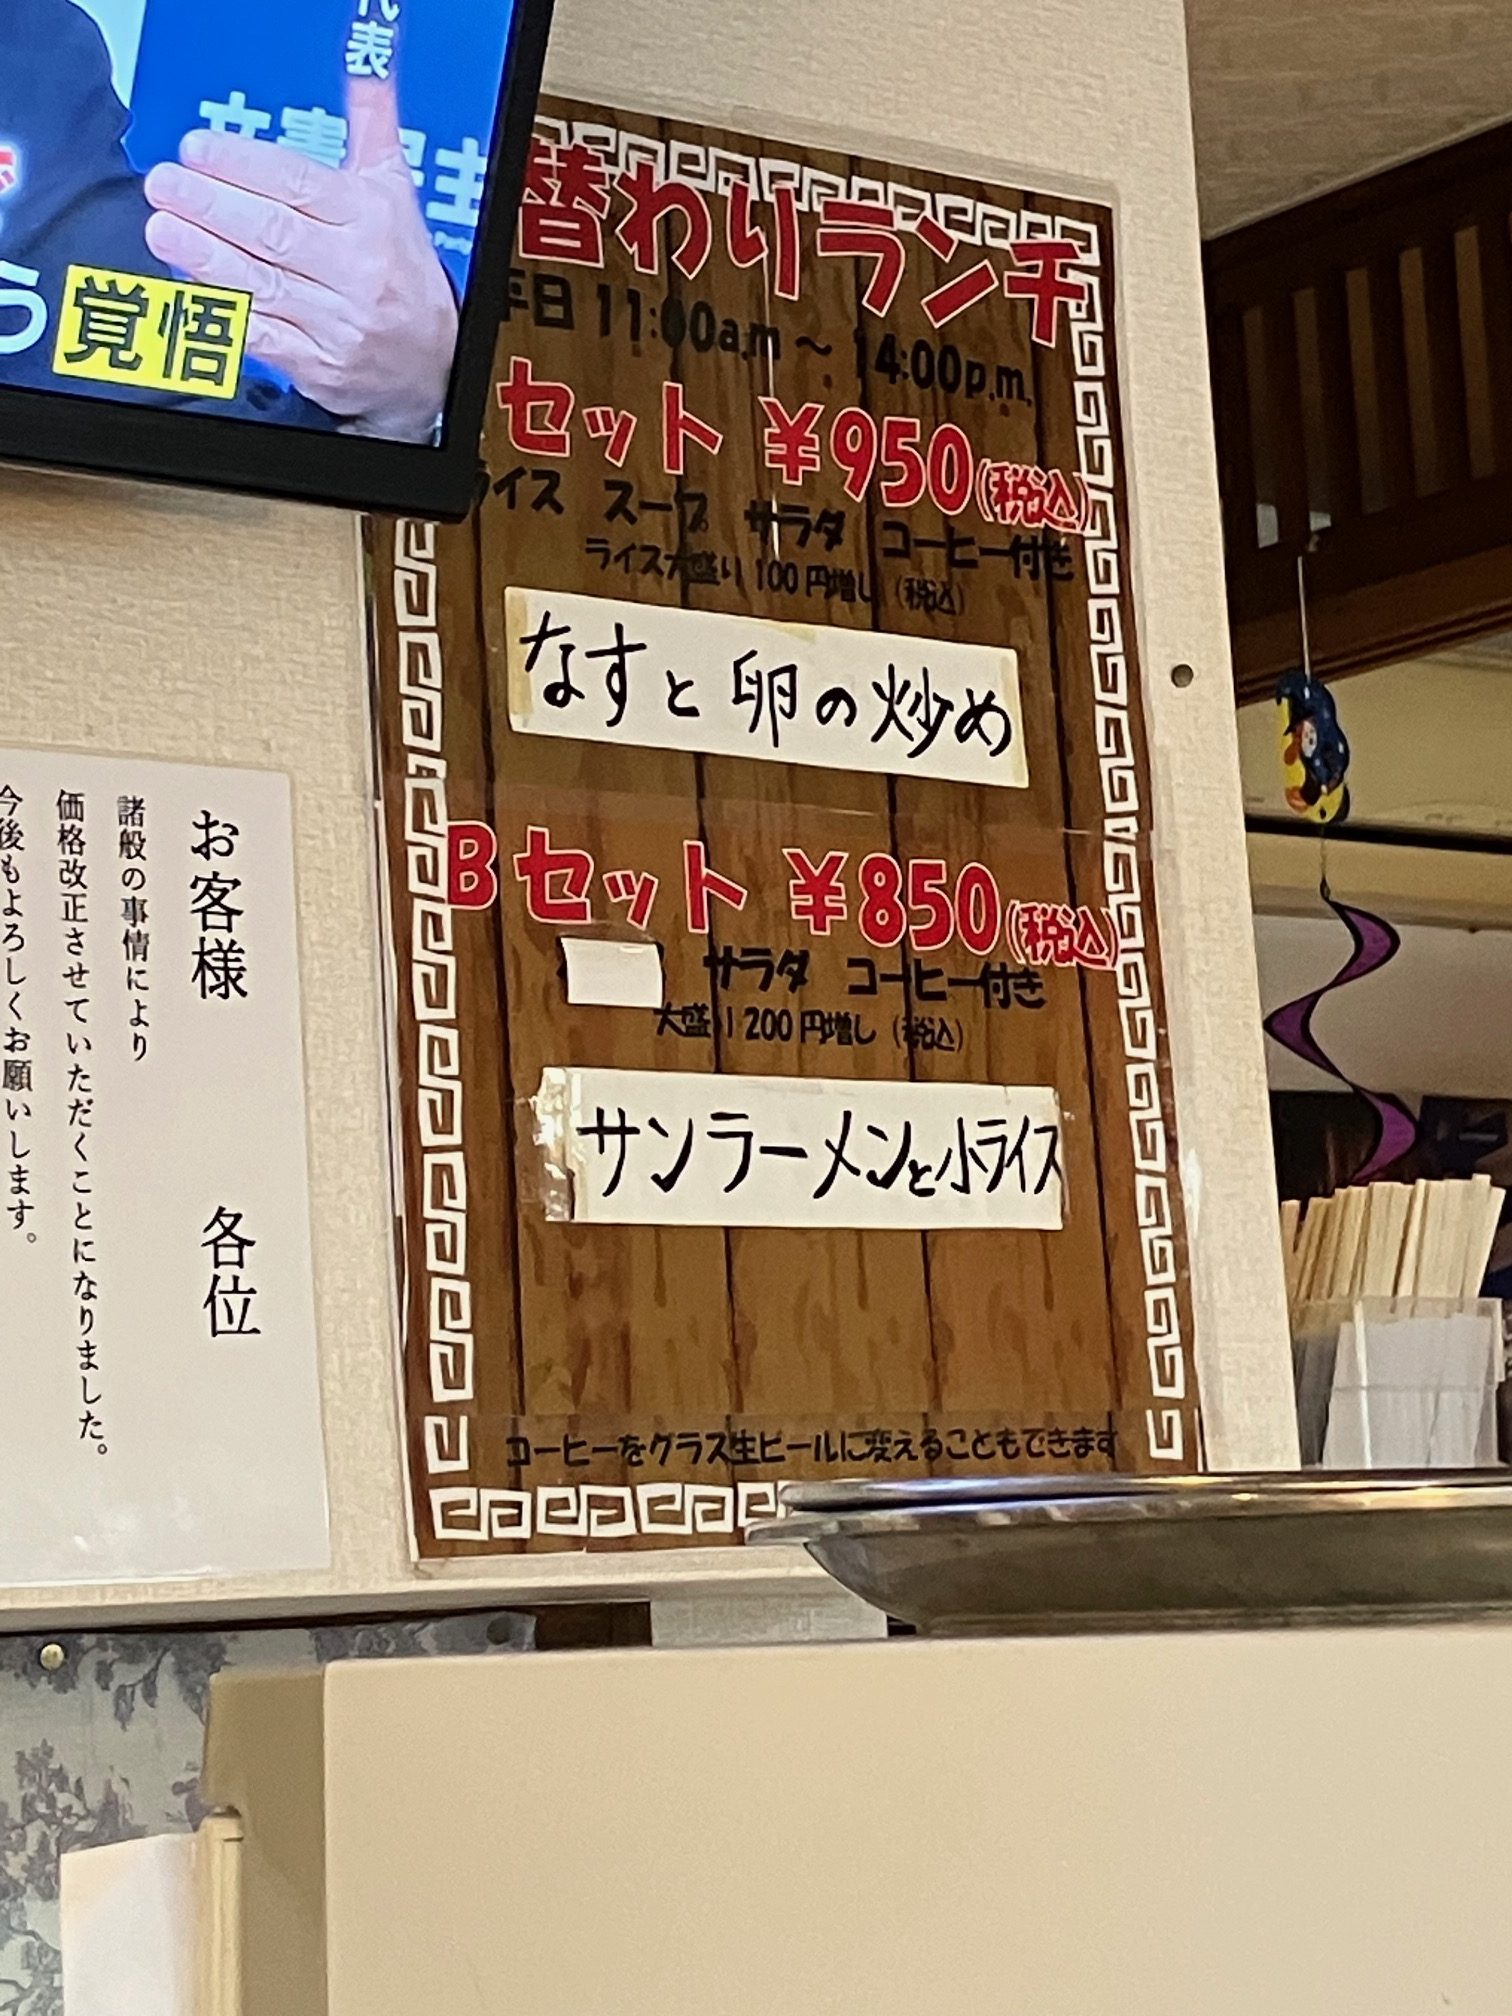 代表
立憲民主
う覚悟
替わりランチ
平日 11:00a.m ～ 14:00p.m.
セット ¥950(税込)
ライス スープ サラダ コーヒー付き
ライス大盛り 100円増し (税込)
なすと卵の炒め
Bセット ¥850(税込)
サラダ コーヒー付き
大盛り 200円増し (税込)
サンラーメンと小ライス
コーヒーをグラス生ビールに変えることもできます
お客様 各位
諸般の事情により
価格改正させていただくことになりました。
今後もよろしくお願いします。